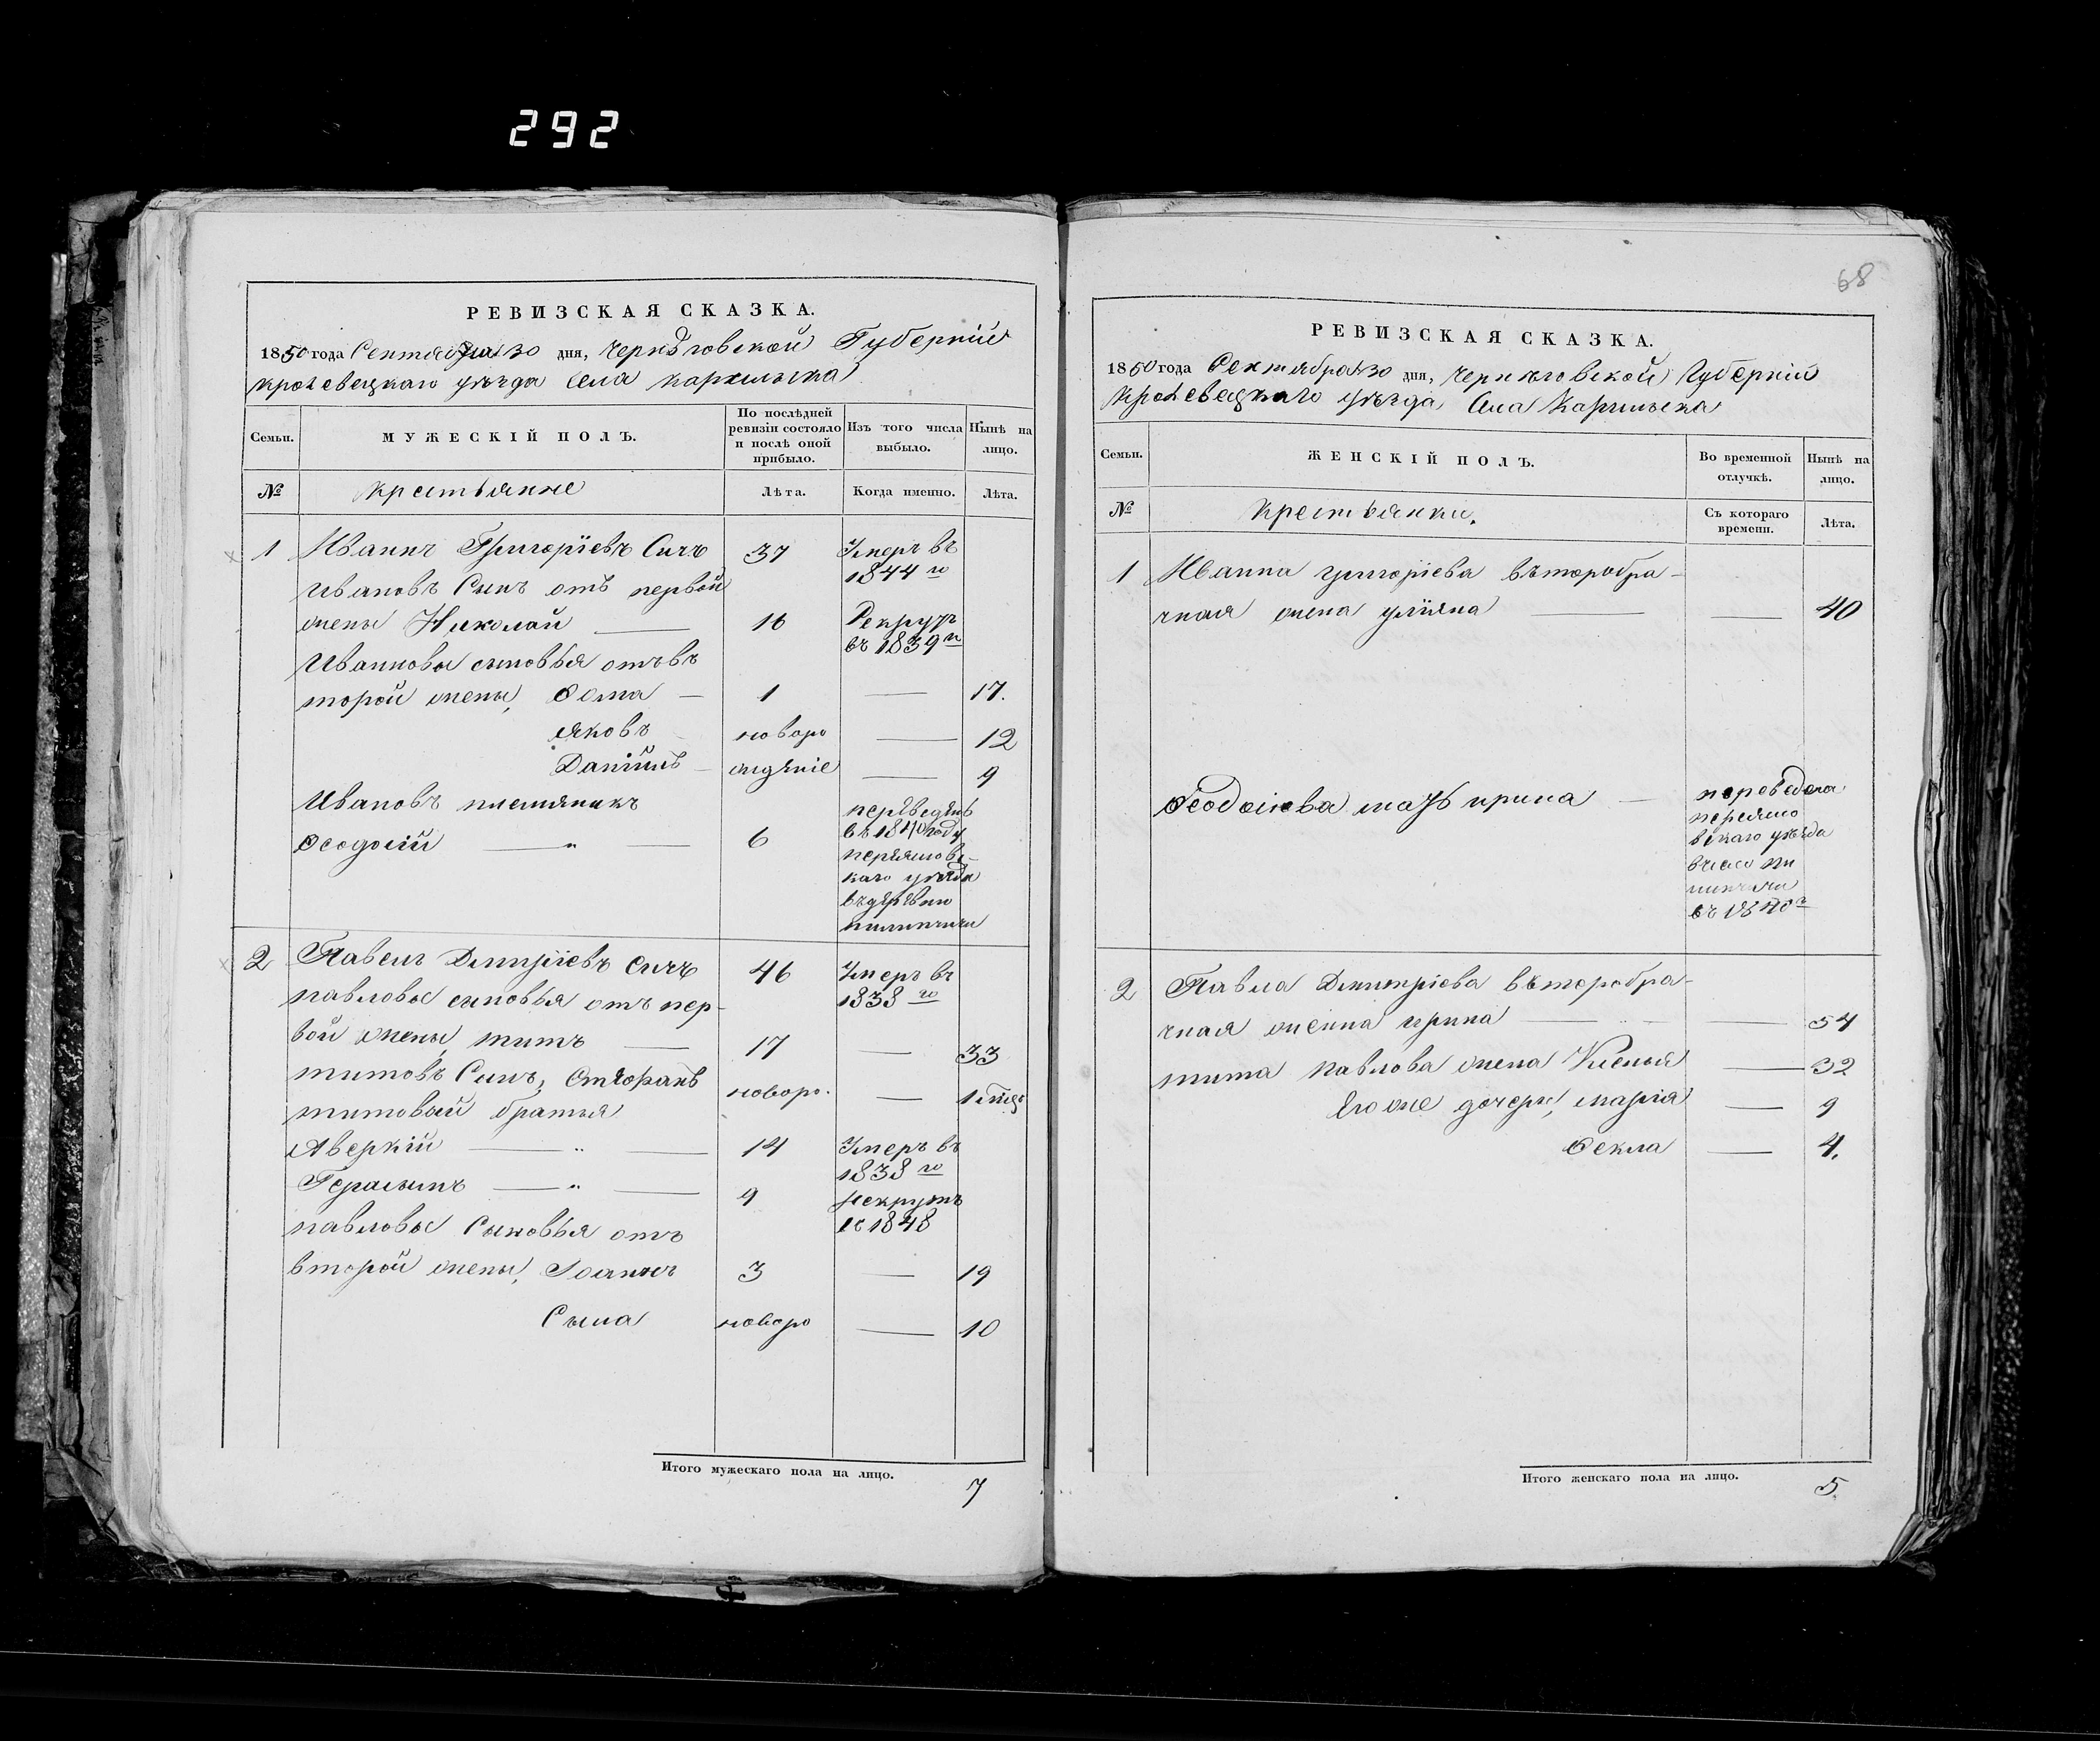 292
РЕВИЗСКАЯ СКАЗКА.
1850 года Сентября 30 дня, Черниговской Губерніи
Кролевецкаго уѣзда Села Каръильска
Семьи.
МУЖЕСКІЙ ПОЛЪ.
По послѣдней ревизіи состояло и послѣ оной прибыло.
Изъ того числа выбыло.
Нынѣ на лицо.
№
Крестьянне
Лѣта.
Когда именно.
Лѣта.
1 Иваннъ Григоріевъ Сичъ 37 Умеръ въ
1844 го
Ивановъ Сынъ отъ первой
жены Николай 16 Рекрутъ
въ 1839 го
Иванновы сыновья отъ в
торой жены, Фома 1 — 17.
яковъ новоро — 12
Даніилъ жденіе — 9
Ивановъ племяникъ
Феодосій " 6 переведенъ
въ 1840 году
каго уезда
въ деревню
2 Павелъ Дмитріевъ Сичъ 46 Умеръ въ
1838 го
павловы сыновья отъ пер-
вой жены титъ 17 — 33
титовъ Сынъ, Стефанъ новоро. —
титовый братья
Аверкій " 14 Умеръ въ
1838 го
Герасымъ " 9 рекрутъ
въ 1848
павловы Сыновья отъ
второй жены, Іоаннъ 3 — 19
Сыла новоро — 10
Итого мужескаго пола на лицо.
7
68
РЕВИЗСКАЯ СКАЗКА.
1850 года Сентября 30 дня, Черниговской Губерніи
Кролевецкаго уѣзда Села Каръильска
Семьи.
ЖЕНСКІЙ ПОЛЪ.
Во временной отлучкѣ.
Нынѣ на лицо.
№
Крестьянки.
Съ котораго времени.
Лѣта.
1 Иванна григоріева въторобра-
чная жена уліяна — 40
Феодосіева мать ирина — переведена
каго уезда
въ село
въ 1840 г
2 Павла Дмитріева въторобра-
чная женна ирина — 54
тита павлова жена Ксенья — 32
Его же дочери, марія — 9
Фекла — 4.
Итого женскаго пола на лицо.
5.